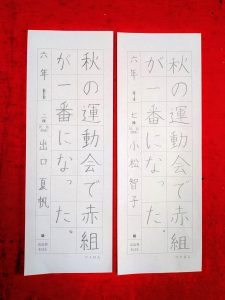 秋の運動会で赤組
が一番になった。
六年 小松智子
秋の運動会で赤組
が一番になった。
六年 出口夏帆